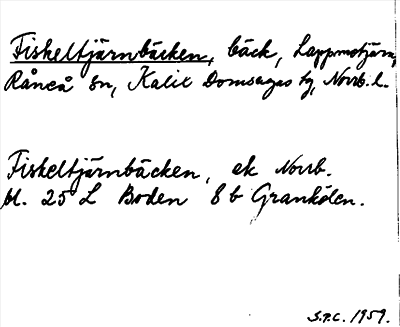 Fiskeltjärnbäcken, bäck, Lappmotjärn,
Råneå sn, Kalix Domsagas tg, Norrb. l.
Fiskeltjärnbäcken, ek Norrb.
bl. 25 L Boden 8 b Granhölen.
S.P.C. 1959.